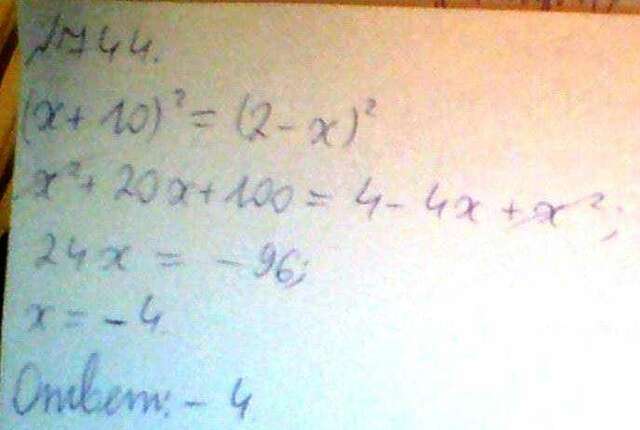 № 44.
(x+10)² = (2-x)²
x²+20x+100 = 4-4x+x²;
24x = -96;
x = -4
Ответ: -4